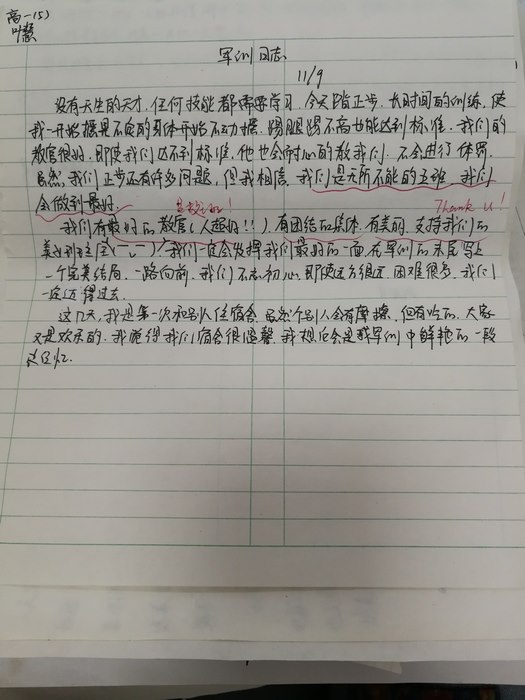 高一(5)
叶慧
军训日志
11/9
没有天生的天才,任何技能都需要学习.今天踏正步.长时间的训练,使
我一开始摇晃不定的身体开始不动摇.踢腿踢不高也能达到标准.我们的
教官很好.即使我们达不到标准,他也会耐心的教我们.不会进行体罚.
虽然,我们正步还有许多问题,但我相信.我们是无所不能的五班.我们
会做到最好.
Thank U!
我们有最好的教官(人超好!!).有团结的集体.有美的.支持我们的
美女班主任(一一).我们一定会发挥我们最好的一面,在军训的末尾写上
一个完美结局.一路向前.我们不忘初心.即使远方很远.困难很多.我们
一定迈得过去.
这几天,我是第一次和别人住宿舍.虽然个别人会有摩擦.但有吃的.大家
又是欢乐的.我觉得我们宿舍很温馨.我想它会是我军训中鲜艳的一段
记忆.